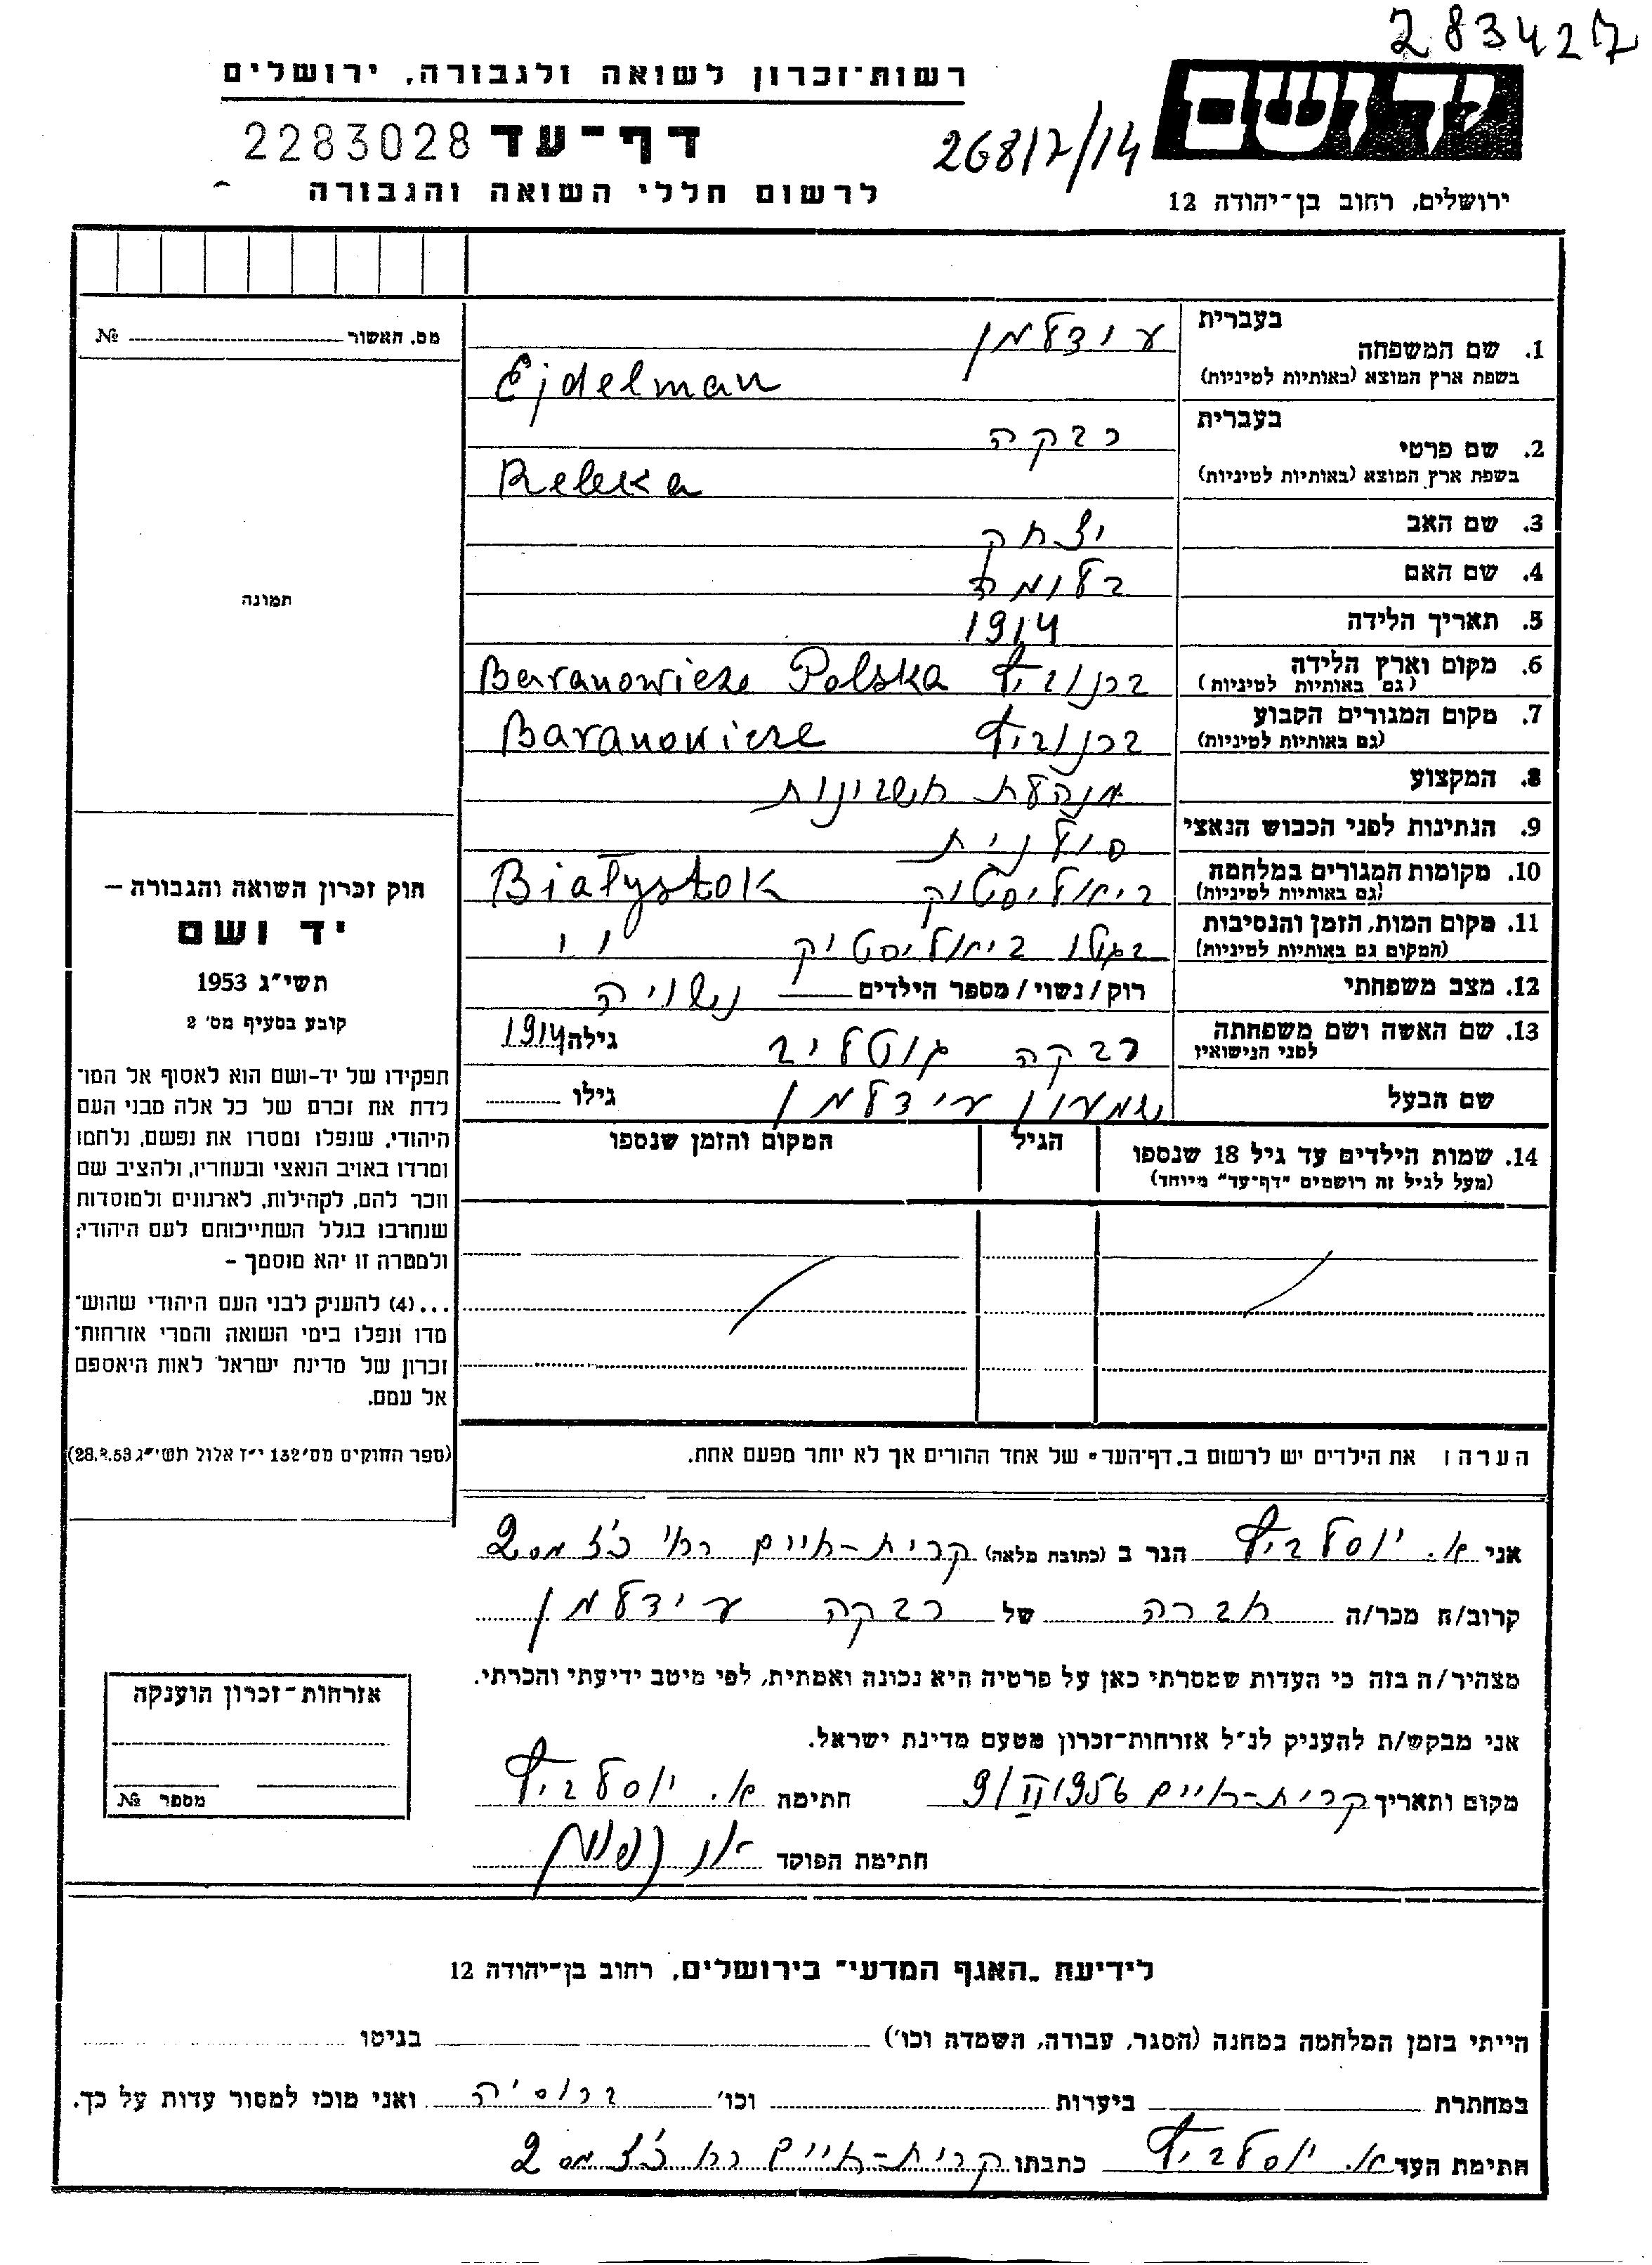 283427
יד ושם
רשות־זכרון לשואה ולגבורה, ירושלים
דף־עד 2283028
268/7/14
לרשום חללי השואה והגבורה
ירושלים, רחוב בן־יהודה 12
מס. האשור № 
תמונה
1. שם המשפחה בעברית עידלמן
בשפת ארץ המוצא (באותיות לטיניות) Ejdelman
2. שם פרטי בעברית רבקה
בשפת ארץ המוצא (באותיות לטיניות) Rebeka
3. שם האב יצחק
4. שם האם בלומה
5. תאריך הלידה 1914
6. מקום וארץ הלידה (גם באותיות לטיניות) ברנוביץ Baranowicze Polska
7. מקום המגורים הקבוע (גם באותיות לטיניות) ברנוביץ Baranowicze
8. המקצוע מנהלת חשבונות
9. הנתינות לפני הכבוש הנאצי פולנית
10. מקומות המגורים במלחמה (גם באותיות לטיניות) ביאליסטוק Białystok
11. מקום המות, הזמן והנסיבות (המקום גם באותיות לטיניות) בגטו ביאליסטוק ״
12. מצב משפחתי רוק/נשוי/מספר הילדים נשויה
13. שם האשה ושם משפחתה לפני הנישואין רבקה גוטליב גילה 1914
שם הבעל שמעון עידלמן גילו
14. שמות הילדים עד גיל 18 שנספו הגיל המקום והזמן שנספו
(מעל לגיל זה רושמים "דף־עד" מיוחד)
חוק זכרון השואה והגבורה –
יד ושם
תשי"ג 1953
קובע בסעיף מס' 2
תפקידו של יד-ושם הוא לאסוף אל המו־
לדת את זכרם של כל אלה מבני העם
היהודי, שנפלו ומסרו את נפשם, נלחמו
ומרדו באויב הנאצי ובעוזריו, ולהציב שם
וזכר להם, לקהילות, לארגונים ולמוסדות
שנחרבו בגלל השתייכותם לעם היהודי;
ולמטרה זו יהא מוסמך –
...(4) להעניק לבני העם היהודי שהוש־
מדו ונפלו בימי השואה והמרי אזרחות־
זכרון של מדינת ישראל לאות היאספם
אל עמם.
(ספר החוקים מס' 132 י"ז אלול תשי"ג 28.8.53)
הערה: את הילדים יש לרשום ב„דף־העד" של אחד ההורים אך לא יותר מפעם אחת.
אני א. יוסלביץ הגר ב (כתובת מלאה) קרית-חיים מס 2
קרוב/ה מכר/ה חברה של רבקה עידלמן
מצהיר/ה בזה כי העדות שמסרתי כאן על פרטיה היא נכונה ואמתית, לפי מיטב ידיעתי והכרתי.
אני מבקש/ת להעניק לנ"ל אזרחות־זכרון מטעם מדינת ישראל.
מקום ותאריך קרית-חיים 9/II 1956 חתימה א. יוסלביץ
חתימת הפוקד
אזרחות־זכרון הוענקה
מספר №
לידיעת „האגף המדעי" בירושלים, רחוב בן־יהודה 12
הייתי בזמן המלחמה במחנה (הסגר, עבודה, השמדה וכו') בגיטו
במחתרת ביערות וכו' ברוסיה ואני מוכן למסור עדות על כך.
חתימת העד א. יוסלביץ כתבתו קרית-חיים מס 2